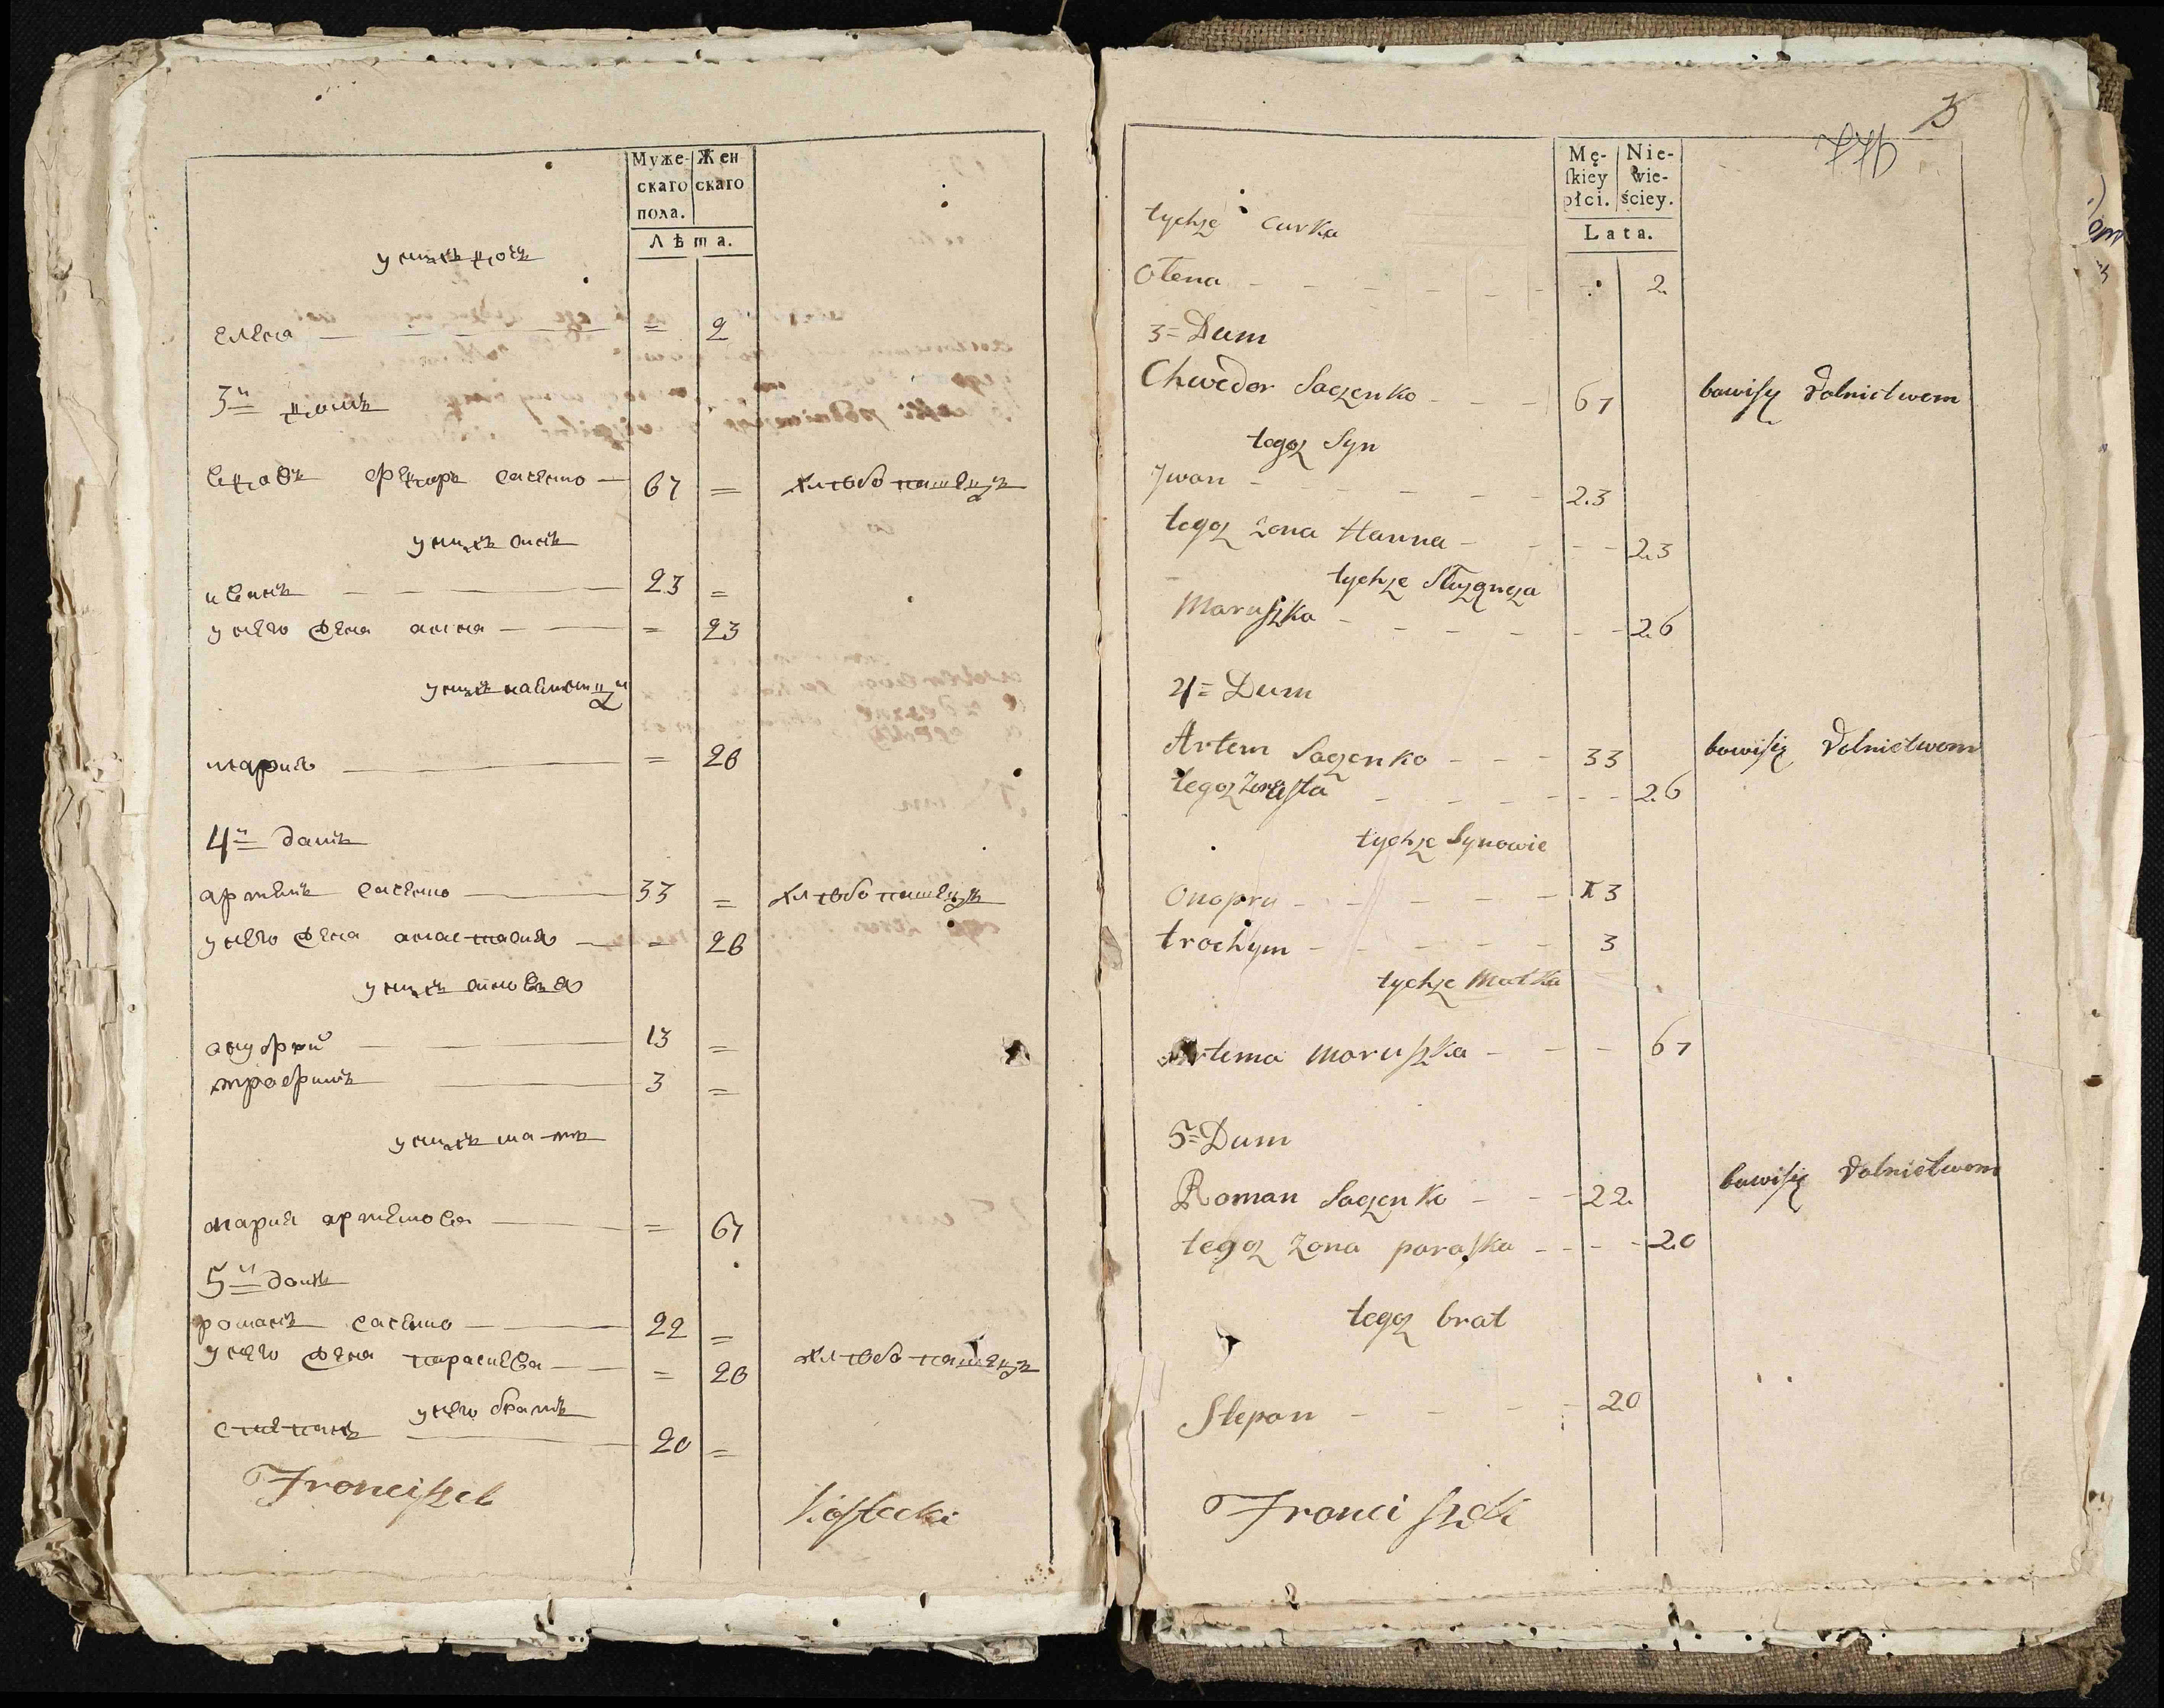 Муже-
скаго
пола.
Жен
скаго
Лѣта.
у нихъ дочь
елена = 2
3й домъ
вдовъ федоръ саченко 67 = хлѣбопашецъ
у нихъ синъ
иванъ 23 =
у него жена анна = 23
у нихъ наймитци
мария = 26
4й домъ
артемъ саченко 33 = хлѣбопашецъ
у него жена анастасия = 26
у нихъ синовья
ануфрий 13 =
трофимъ 3 =
у нихъ мать
мария артемова = 67
5й домъ
романъ саченко 22 =
у него жена параскева = 20 хлѣбопашецъ
у него братъ
степанъ 20 =
Franciszek Kostecki
3
Mę-
skiey
płci.
Nie-
wie-
ściey.
Lata.
tychże curka
Ołena 2
3 = Dum
Chwedor Saczenko 67 bawisię Rolnictwem
tegoż Syn
Jwan 23
tegoż żona Hanna 23
tychże Służąnca
Maruszka 26
4 = Dum
Artem Saczenko 33 bawisię Rolnictwem
tegoż żona 26
tychże Synowie
Onopru 13
trochym 3
tychże Matka
Artema Maruszka 67
5 = Dum
Roman Saczenko 22 bawisię Rolnictwem
tegoż żona paraska 20
tegoż brat
Stepan 20
Franciszek